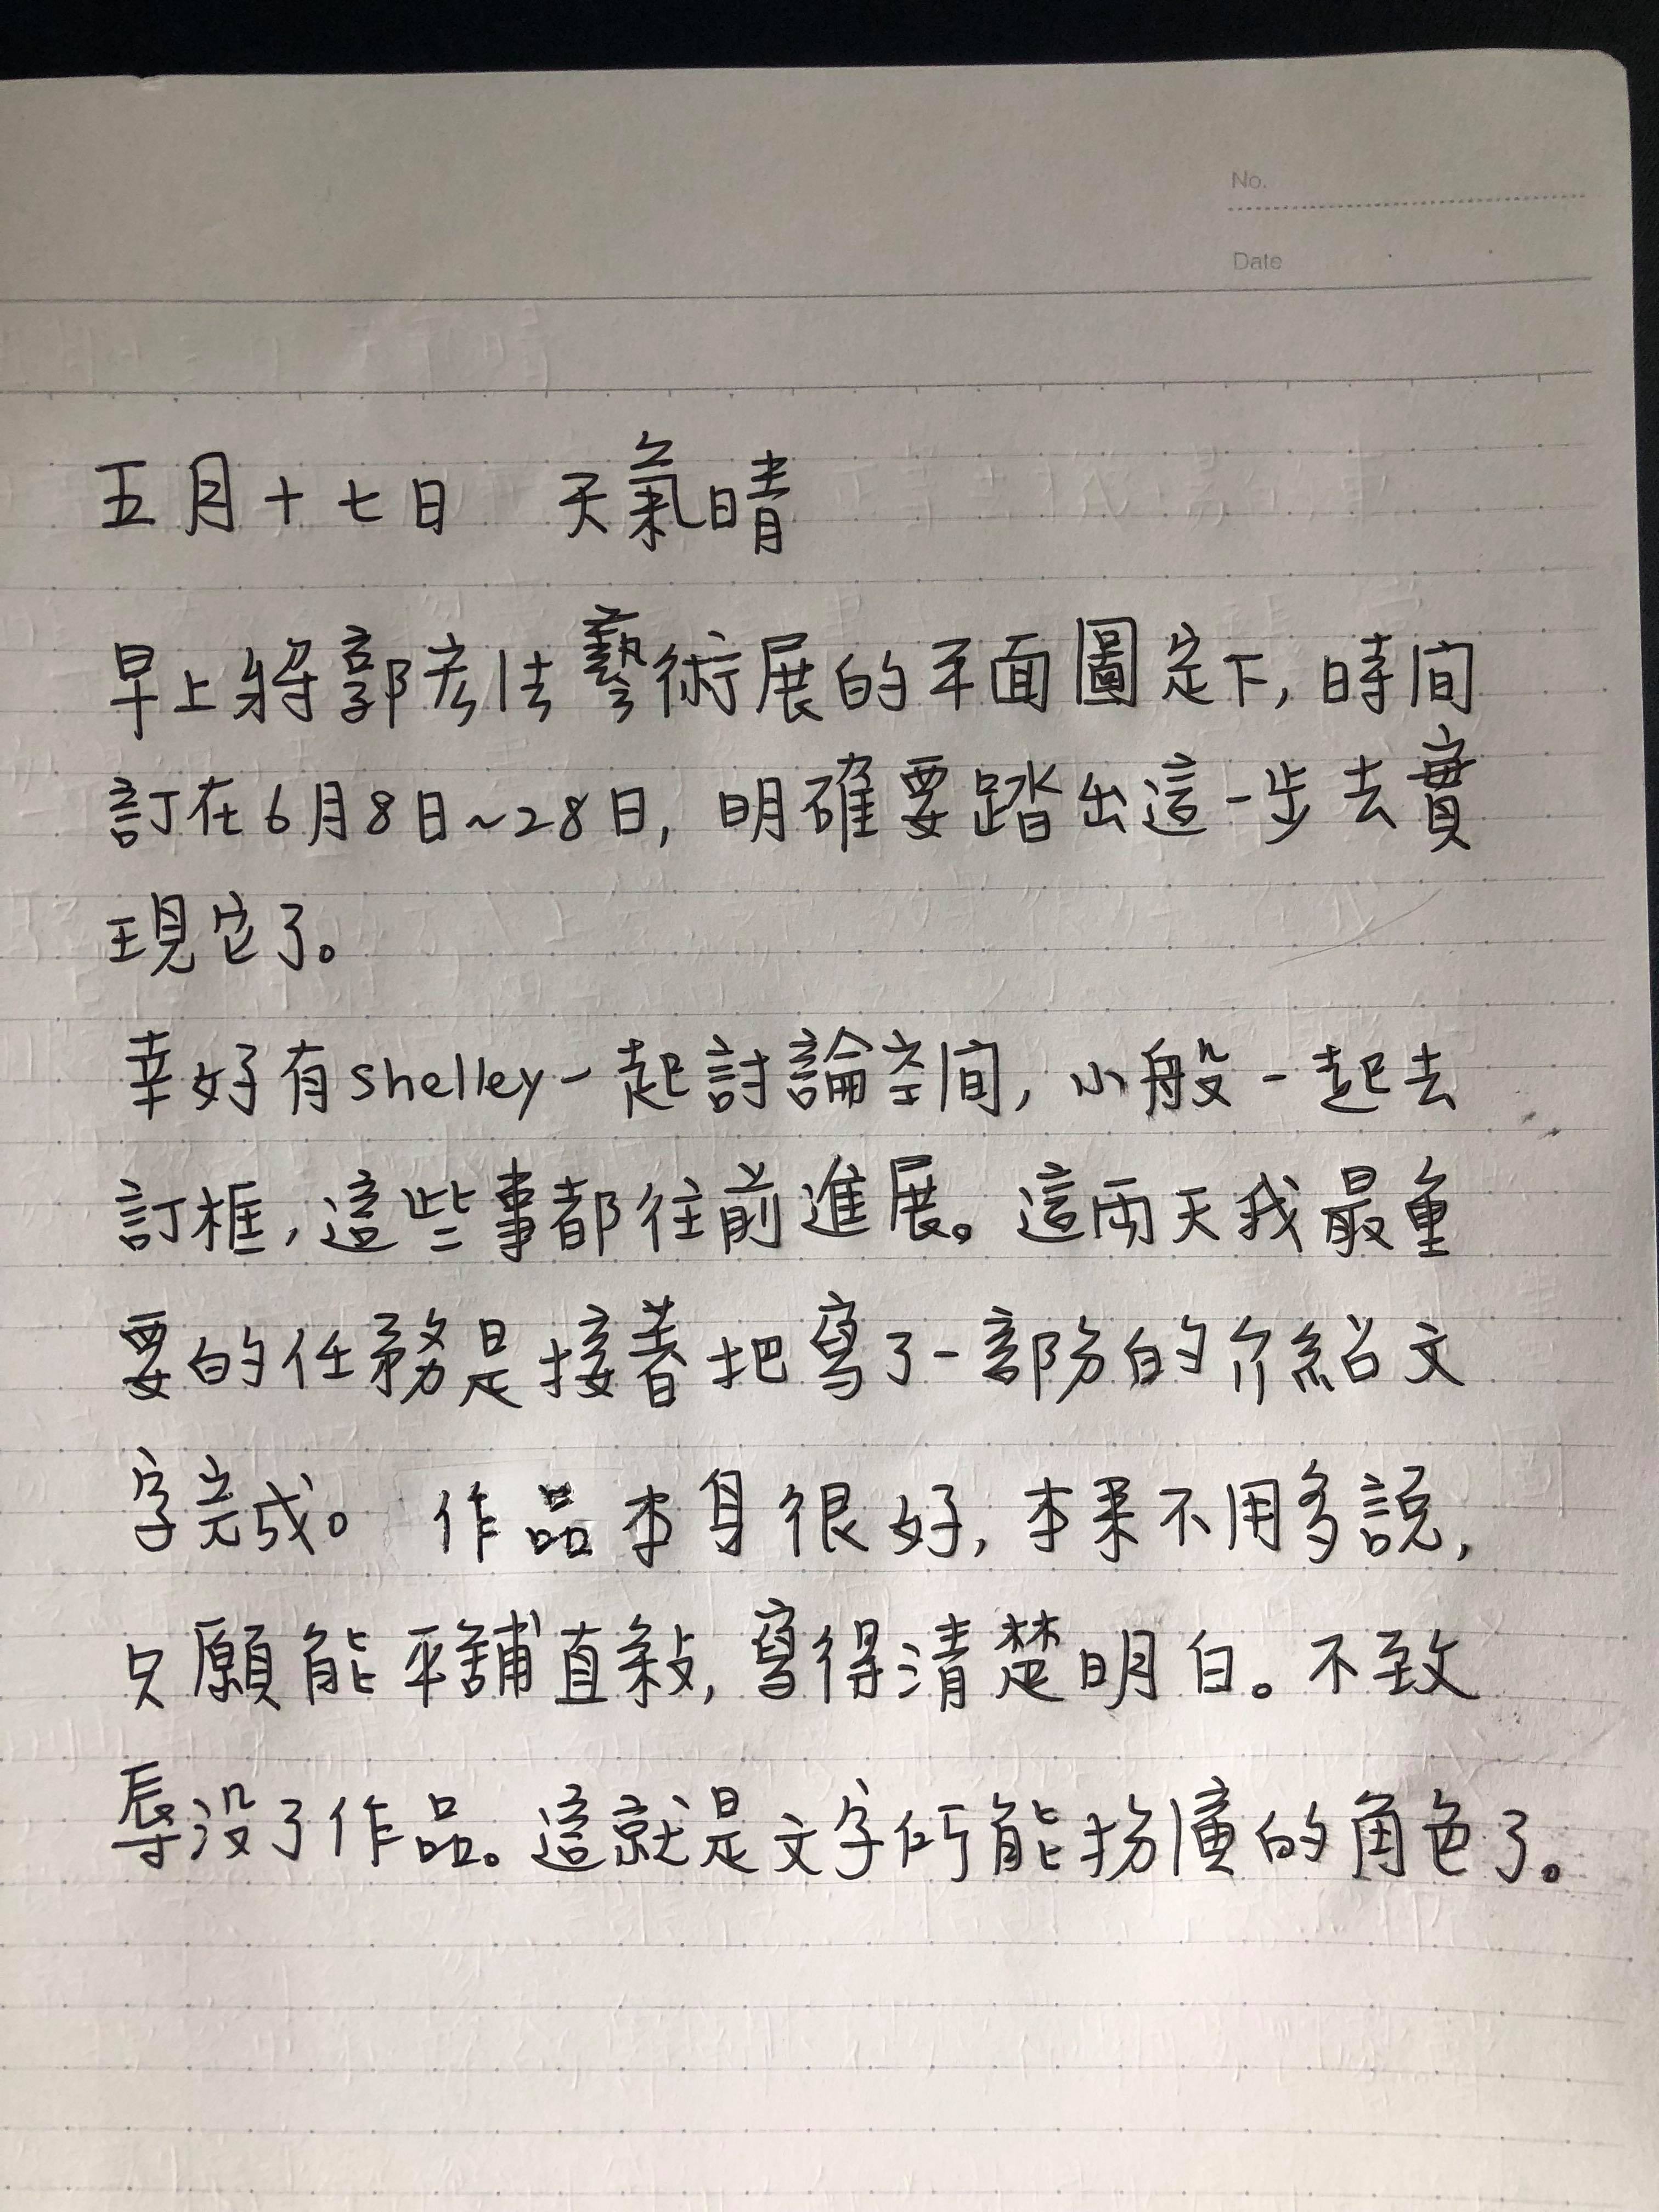 No.
Date
五月十七日　天氣晴
早上將郭宏法藝術展的平面圖定下,時間
訂在6月8日~28日,明確要踏出這一步去實
現它了。
幸好有shelley一起討論空間,小般一起去
訂框,這些事都往前進展。這兩天我最重
要的任務是接著把寫了一部份的介紹文
字完成。作品本身很好,本來不用多說,
只願能平舖直敘,寫得清楚明白。不致
辱沒了作品。這就是文字所能扮演的角色了。